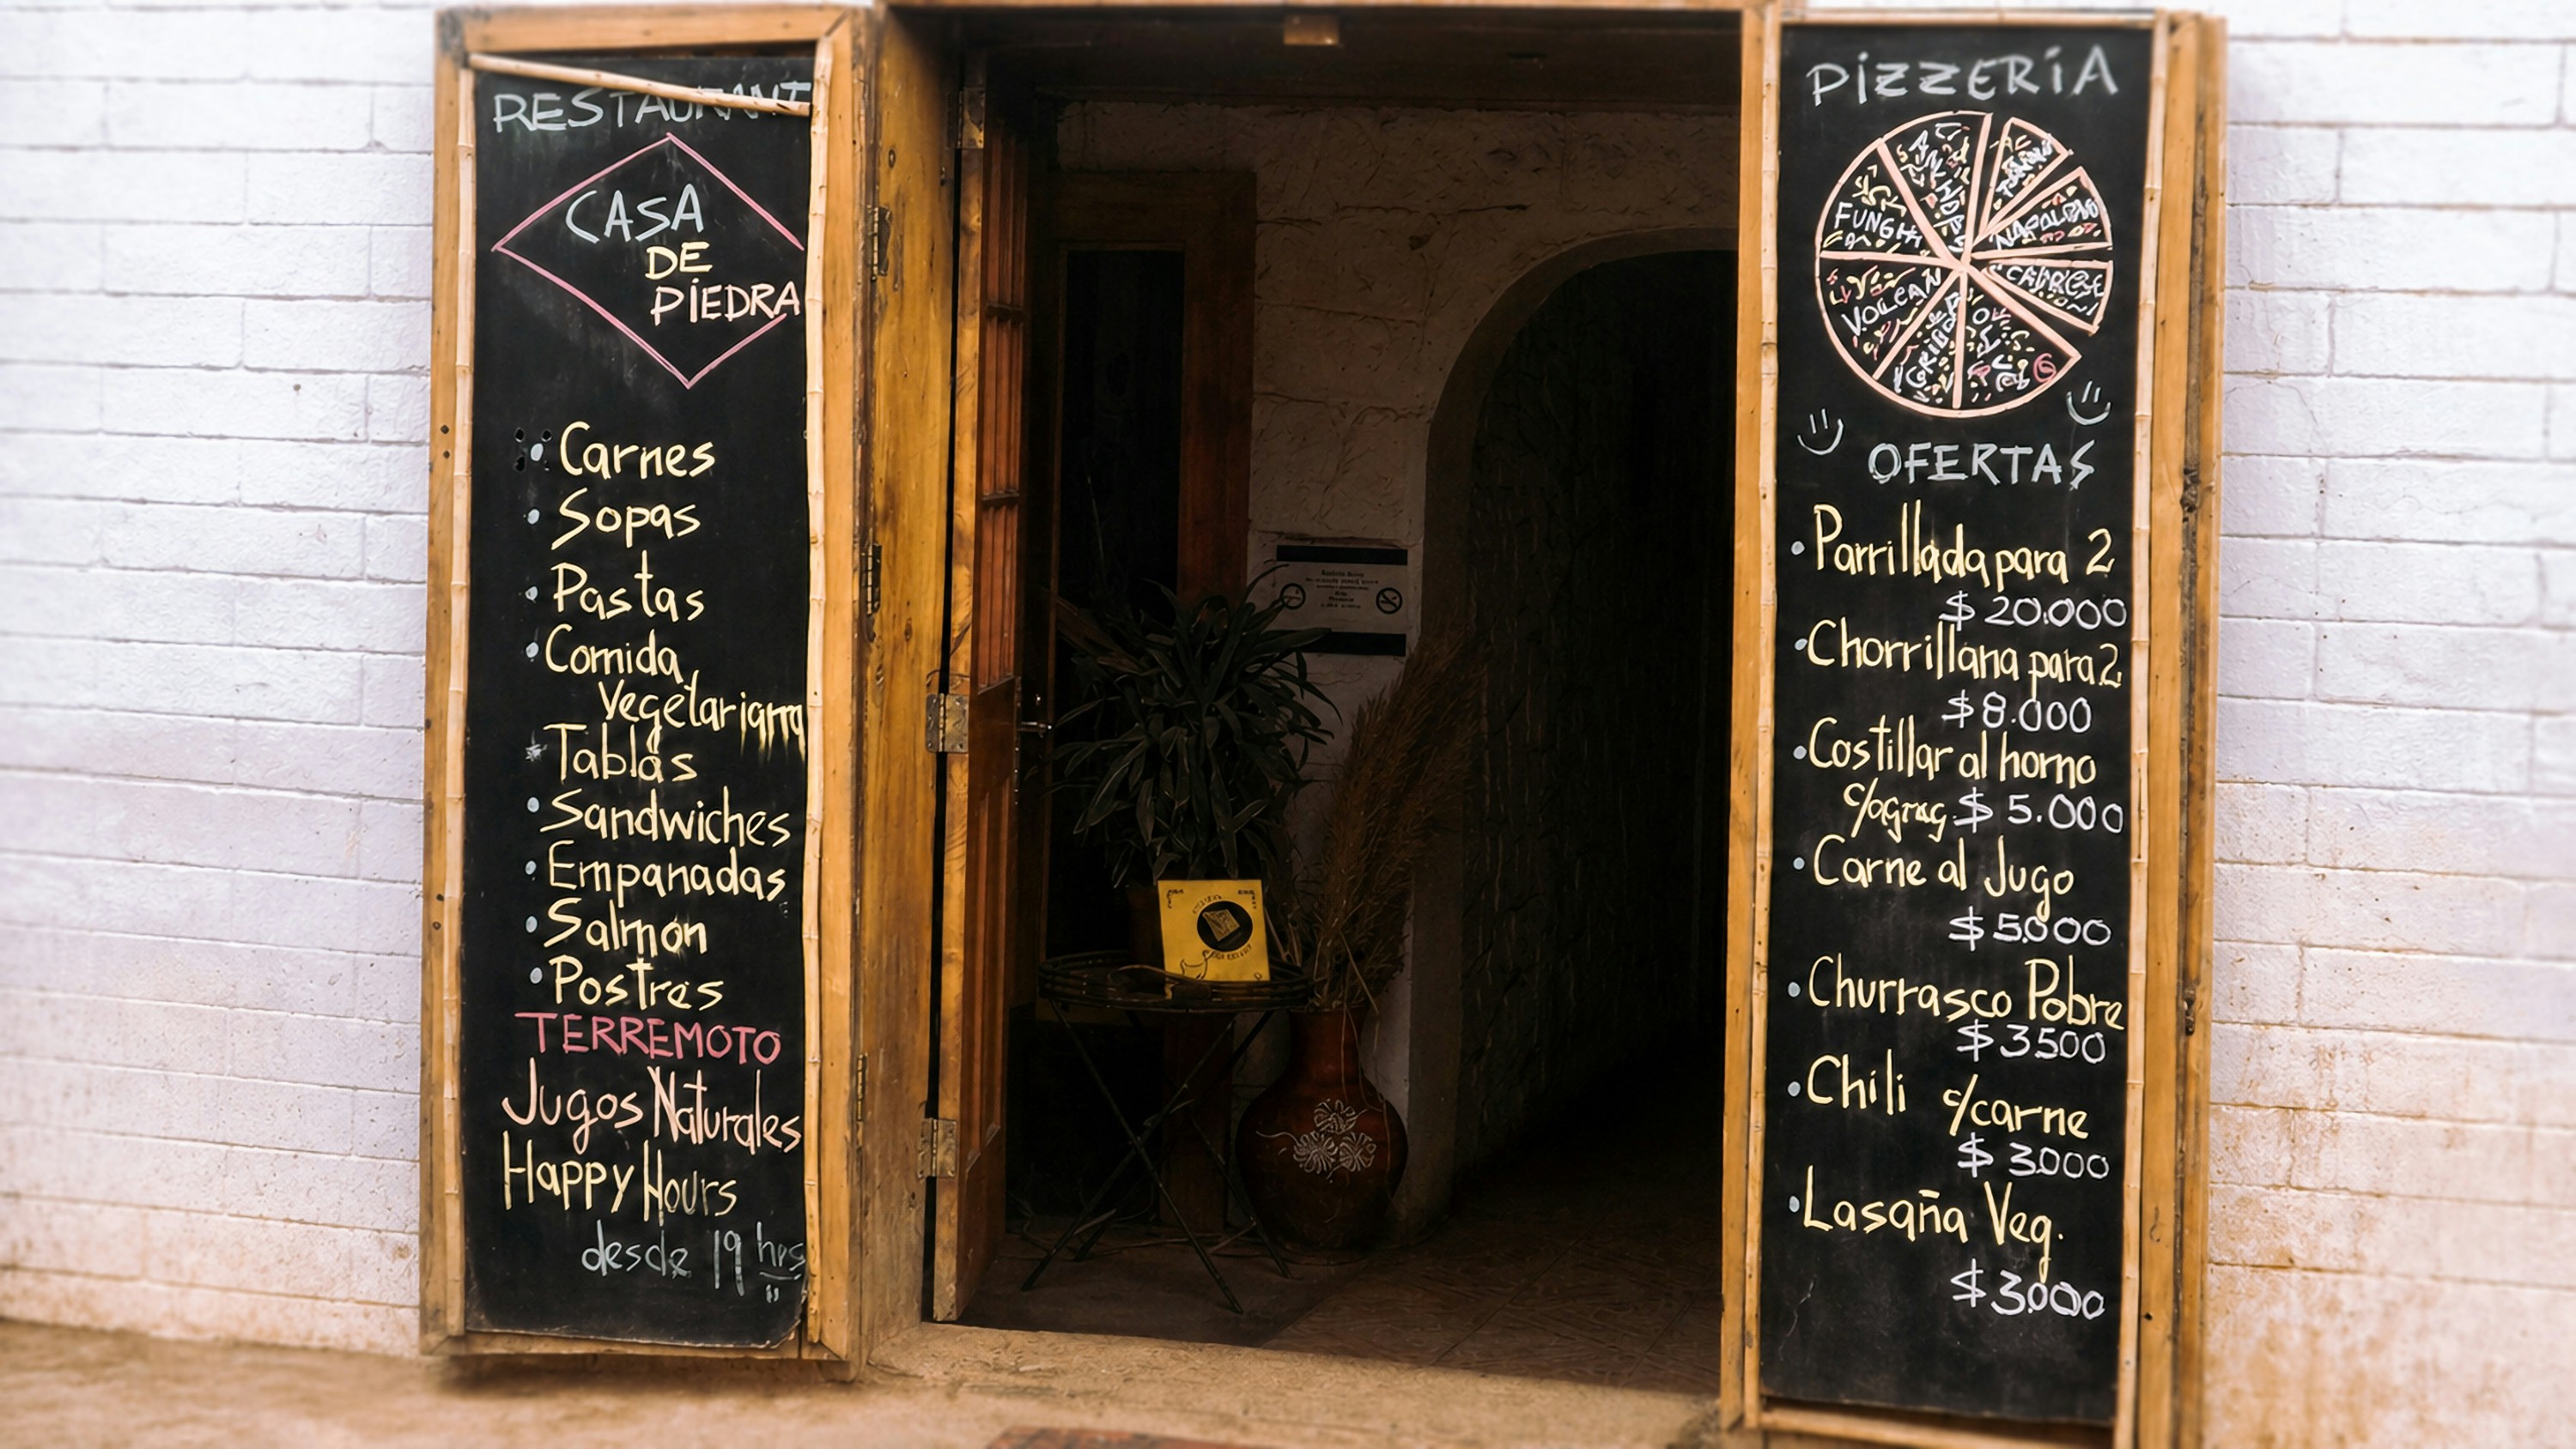 RESTAURANT
CASA
DE
PIEDRA
• Carnes
• Sopas
• Pastas
• Comida
Vegetariana
Tablas
• Sandwiches
• Empanadas
• Salmon
• Postres
TERREMOTO
Jugos Naturales
Happy Hours
desde 19 hrs
PIZZERIA
FUNGHI
VOLCAN
OFERTAS
• Parrillada para 2
$ 20.000
• Chorrillana para 2
$ 8.000
• Costillar al horno
c/agreg $ 5.000
• Carne al Jugo
$ 5.000
• Churrasco Pobre
$ 3500
• Chili c/carne
$ 3.000
• Lasaña Veg.
$ 3.000